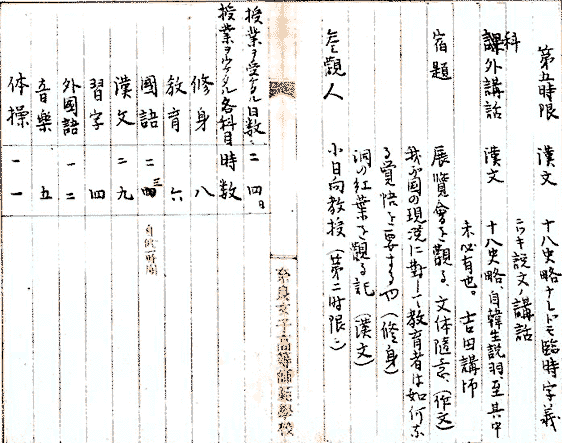 第五時限 漢文 十八史略ナレドモ臨時字義
ニツキ説文ノ講話
科
課外講話 漢文 十八史略、自韓生説羽、至其中
未必有也。 吉田講師
宿題 展覧會を觀る、文体随意、(作文)
我が國の現況に對して教育者は如何な
る覚悟を要するや (修身)
洞の紅葉を觀る記 (漢文)
参觀人 小日向教授 (第二時限ニ)
奈良女子高等師範學校
授業ヲ受ケタル日数、二四日
授業ヲウケタル各科目時数
修身 八
教育 六
國語 二四 三
自修一時間
漢文 二九
習字 四
外國語 一二
音樂 五
体操 一一